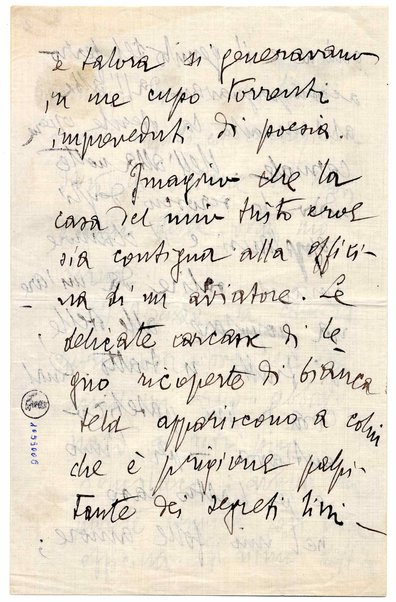 e talora si generavano
in me cupo torrenti
impreveduti di poesia.
Imagino che la
casa del mio tristo eroe
sia contigua alla offici-
na di un aviatore. Le
delicate carcasse di le-
gno ricoperte di bianca
tela appariscono a colui
che è prigione palpi-
tante dei segreti